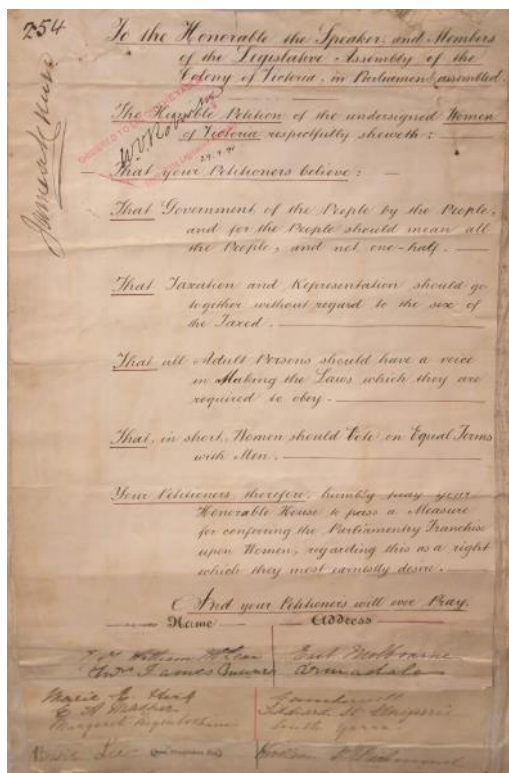 254
To the Honorable the Speaker and Members
of the Legislative Assembly of the
Colony of Victoria, in Parliament assembled.
The Humble Petition of the undersigned Women
of Victoria respectfully sheweth:
That your Petitioners believe:
That Government of the People by the People,
and for the People should mean all
the People, and not one-half.
That Taxation and Representation should go
together without regard to the sex of
the Taxed.
That all Adult Persons should have a voice
in Making the Laws which they are
required to obey.
That, in short, Women should Vote on Equal Terms
with Men.
Your Petitioners, therefore, humbly pray your
Honorable House to pass a Measure
for conferring the Parliamentry Franchise
upon Women, regarding this as a right
which they most earnestly desire.
And your Petitioners will ever Pray.
Name Address
Mrs William McLean East Melbourne
Mrs James Armadale
Marie E Kirk
Margaret South Yarra
Lee Richmond